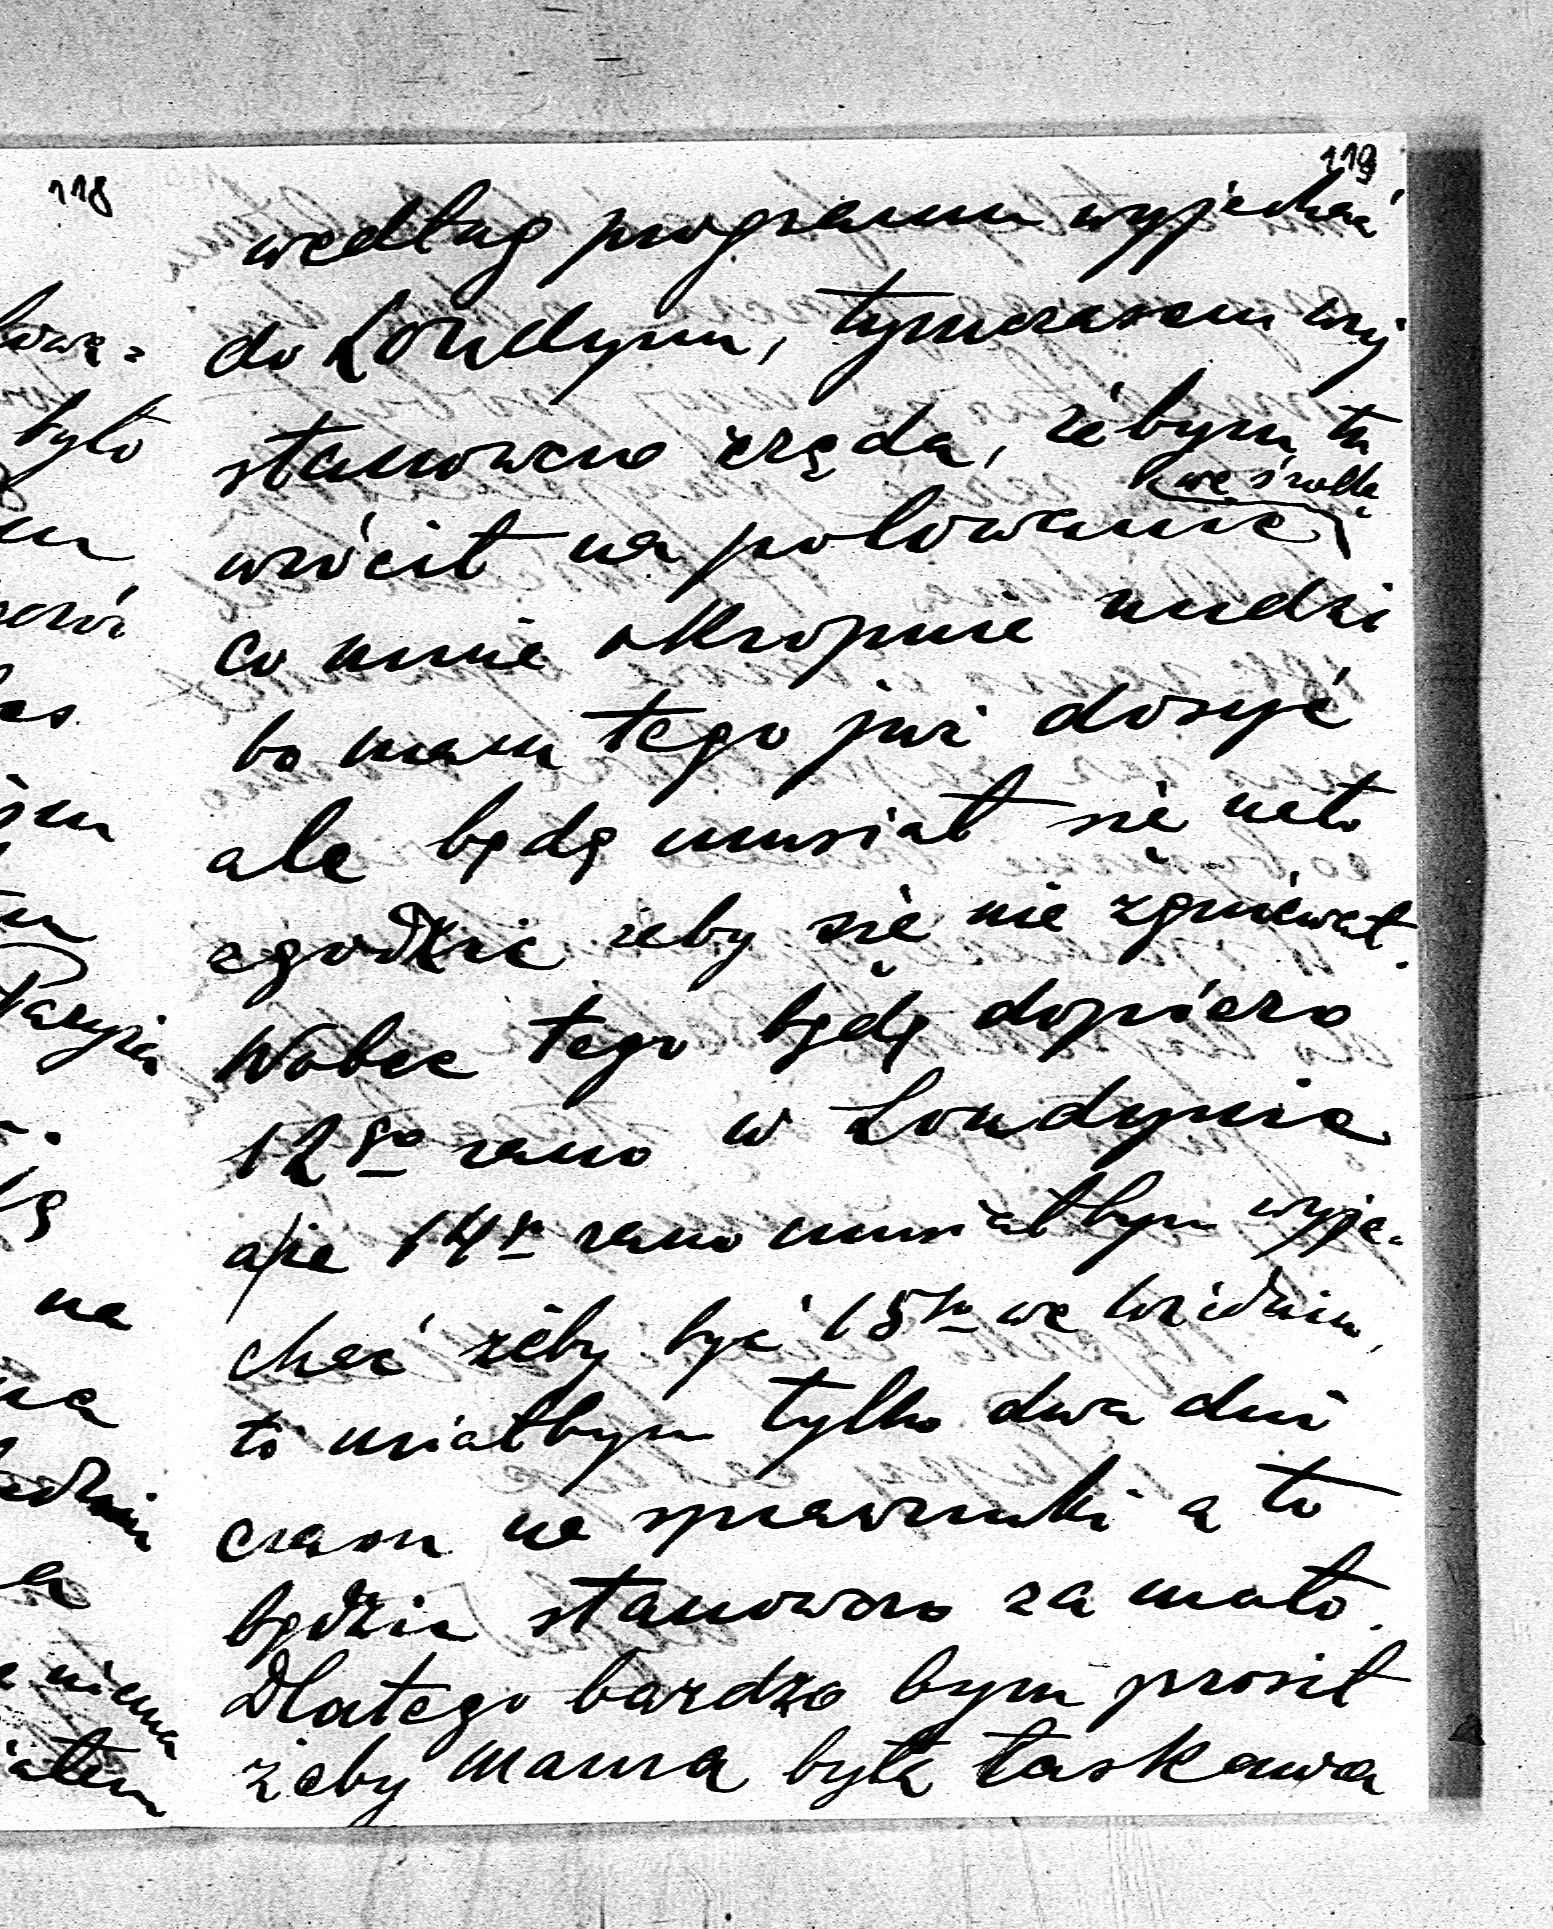 118
119
według programu wyjechać
do Londynu, tymczasem wuj
stanowczo rząda, żebym tu
we środę
wrócił na polowanie
co mnie okropnie nudzi
bo mam tego już dosyć
ale będę musiał się na to
zgodzić żeby się nie zgniewał.
Wobec tego będę dopiero
12go rano w Londynie
a że 14go rano musiałbym wyje-
chać żeby być 15go we Wiedniu,
to miałbym tylko dwa dni
czasu na sprawunki a to
będzie stanowczo za mało.
Dlatego bardzo bym prosił
żeby Mama była łaskawa
było
Paryża
na